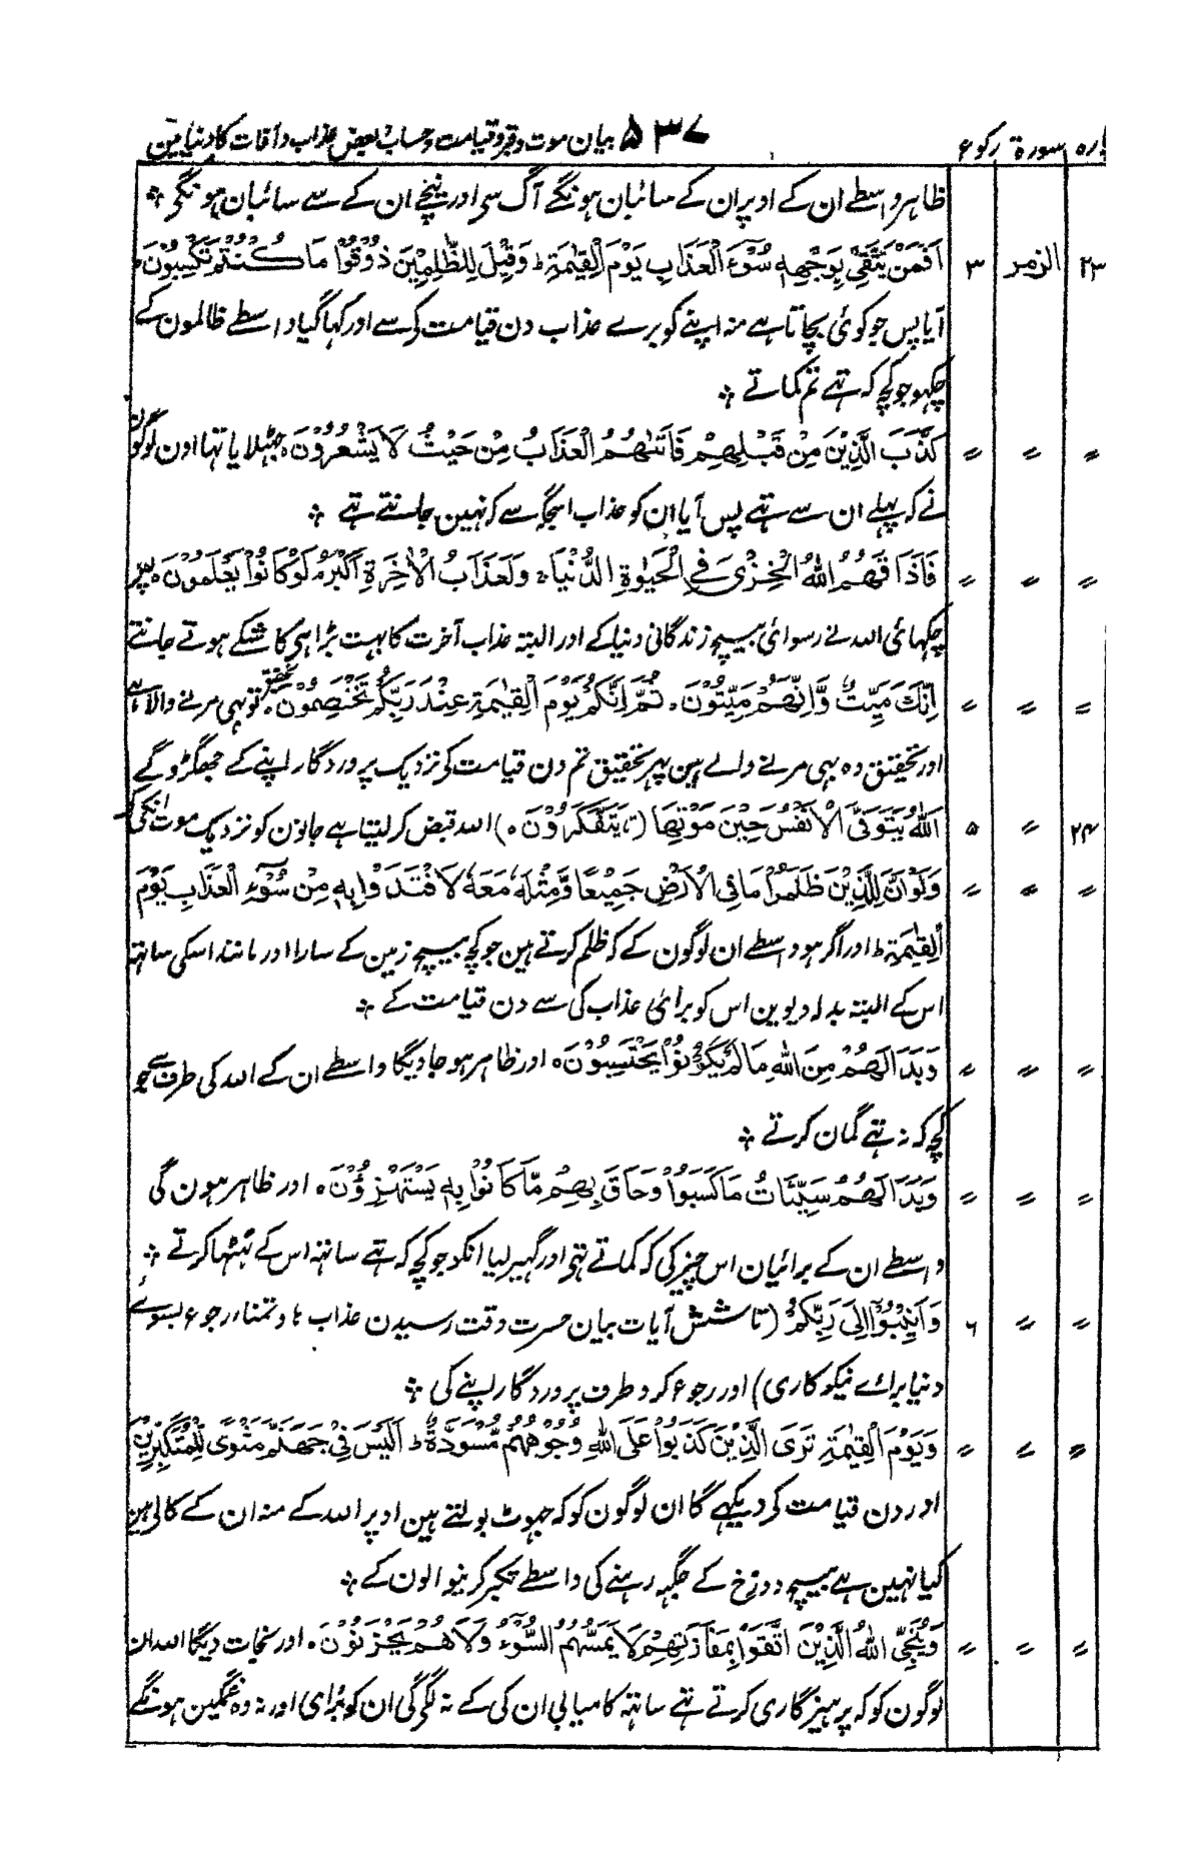 پارہ سورۃ رکوع ۵۳۷ بیان موت وقبر وقیامت وحساب بعض عذاب وآفات کا دنیا مین
ظاہر واسطے ان کے اوپر ان کے سائبان ہونگے آگ سی اور نیچے ان کے سے سائبان ہونگے ؞
۲۳ الزمر ۳ اَفَمَنْ یَّتَّقِیْ بِوَجْهِهٖ سُوْٓءَ الْعَذَابِ یَوْمَ الْقِیٰمَةِ ؕ وَقِیْلَ لِلظّٰلِمِیْنَ ذُوْقُوْا مَا کُنْتُمْ تَکْسِبُوْنَ ۰
آیا پس جو کوئی بچاتا ہے منہ اپنے کو برے عذاب دن قیامت کی سے اور کہا گیا واسطے ظالمون کے
چکہو جو کچہ کہ تہے تم کماتے ؞
〃 〃 〃 کَذَّبَ الَّذِیْنَ مِنْ قَبْلِهِمْ فَاَتٰىهُمُ الْعَذَابُ مِنْ حَیْثُ لَا یَشْعُرُوْنَ ۰ جہٹلایا تہا اون لوگون
نے کہ پہلے ان سے تہے پس آیا ان کو عذاب اسجگہ سے کہ نہین جانتے تہے ؞
〃 〃 〃 فَاَذَاقَهُمُ اللّٰهُ الْخِزْیَ فِی الْحَیٰوةِ الدُّنْیَا ۚ وَلَعَذَابُ الْاٰخِرَةِ اَکْبَرُ ۘ لَوْ کَانُوْا یَعْلَمُوْنَ ۰ پہر
چکہائی اللہ نے رسوائی بیچ زندگانی دنیا کے اور البتہ عذاب آخرت کا بہت بڑا ہی کاشکے ہوتے جانتے
〃 〃 〃 اِنَّكَ مَیِّتٌ وَّاِنَّهُمْ مَیِّتُوْنَ ۰ ثُمَّ اِنَّکُمْ یَوْمَ الْقِیٰمَةِ عِنْدَ رَبِّکُمْ تَخْتَصِمُوْنَ ۰ تحقیق تو بہی مرنے والا ہے
اور تحقیق وہ بہی مرنے والے ہین پہر تحقیق تم دن قیامت کی نزدیک پروردگار اپنے کے جھگڑو گے
۲۴ 〃 ۵ اَللّٰهُ یَتَوَفَّی الْاَنْفُسَ حِیْنَ مَوْتِهَا (تا یَتَفَکَّرُوْنَ ۰) اللہ قبض کر لیتا ہے جانون کو نزدیک موت انکی کے
〃 〃 〃 وَلَوْ اَنَّ لِلَّذِیْنَ ظَلَمُوْا مَا فِی الْاَرْضِ جَمِیْعًا وَّمِثْلَهٗ مَعَهٗ لَافْتَدَوْا بِهٖ مِنْ سُوْٓءِ الْعَذَابِ یَوْمَ
الْقِیٰمَةِ ؕ اور اگر ہو واسطے ان لوگون کے کہ ظلم کرتے ہین جو کچہ بیچ زمین کے سارا اور مانند اسکی ساتہ
اس کے البتہ بدلا دیوین اس کو برائی عذاب کی سے دن قیامت کے ؞
〃 〃 〃 وَبَدَا لَهُمْ مِنَ اللّٰهِ مَا لَمْ یَکُوْنُوْا یَحْتَسِبُوْنَ ۰ اور ظاہر ہو جاویگا واسطے ان کے اللہ کی طرف سے جو
کچہ کہ نہ تہے گمان کرتے ؞
〃 〃 〃 وَبَدَا لَهُمْ سَیِّئَاتُ مَا کَسَبُوْا وَحَاقَ بِهِمْ مَّا کَانُوْا بِهٖ یَسْتَهْزِءُوْنَ ۰ اور ظاہر ہون گی
واسطے ان کے برائیان اس چیز کی کہ کماتے تہے اور گہیر لیا انکو جو کچہ کہ تہے ساتہ اس کے ٹہٹہا کرتے ؞
〃 〃 ۶ وَاَنِیْبُوْٓا اِلٰی رَبِّکُمْ (تا شش آیات بیان حسرت وقت رسیدن عذاب ہا و تمناء رجوع بسوئے
دنیا برائے نیکوکاری) اور رجوع کرو طرف پروردگار اپنے کی ؞
〃 〃 〃 وَیَوْمَ الْقِیٰمَةِ تَرَی الَّذِیْنَ کَذَبُوْا عَلَی اللّٰهِ وُجُوْهُهُمْ مُّسْوَدَّةٌ ؕ اَلَیْسَ فِیْ جَهَنَّمَ مَثْوًی لِّلْمُتَکَبِّرِیْنَ
اور دن قیامت کی دیکہے گا ان لوگون کو کہ جہوٹ بولتے ہین اوپر اللہ کے منہ ان کے کالی ہین
کیا نہین ہے بیچ دوزخ کے جگہہ رہنے کی واسطے تکبر کرنیوالون کے ؞
〃 〃 〃 وَیُنَجِّی اللّٰهُ الَّذِیْنَ اتَّقَوْا بِمَفَازَتِهِمْ لَا یَمَسُّهُمُ السُّوْٓءُ وَلَا هُمْ یَحْزَنُوْنَ ۰ اور نجات دیگا اللہ ان
لوگون کو کہ پرہیزگاری کرتے تہے ساتہ کامیابی ان کی کے نہ لگے گی ان کو برُای اور نہ وہ غمگین ہونگے